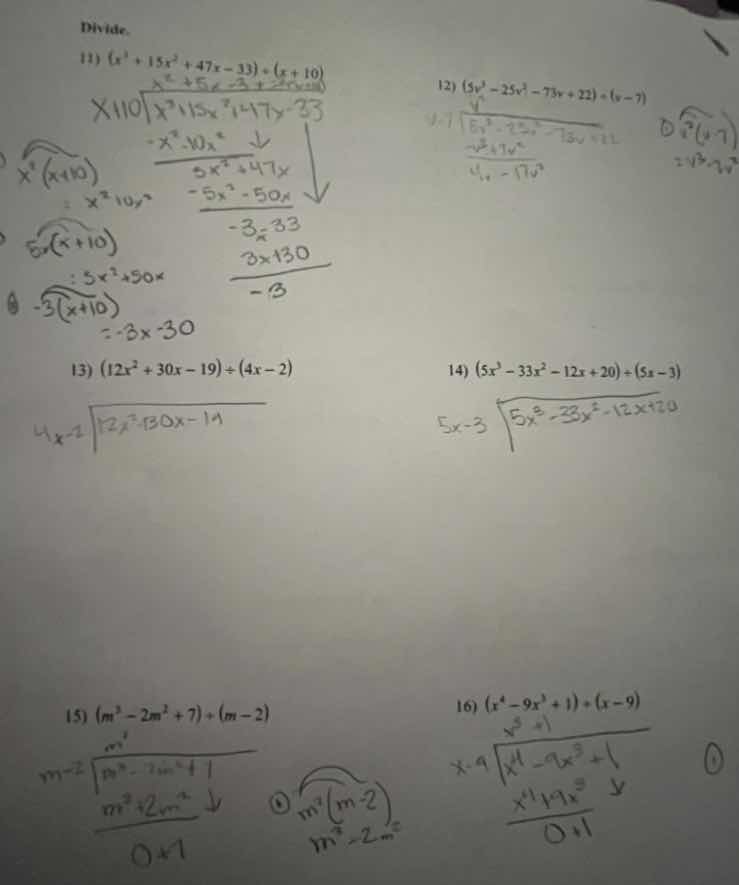 Divide.
11) (x³ + 15x² + 47x − 33) ÷ (x + 10)
x² + 5x − 3 +
x+10 x³+15x²+47x−33
−x³−10x²
5x²+47x
−5x²−50x
−3x−33
3x+30
−3
x²(x+10)
: x³ 10x²
5x(x+10)
: 5x²+50x
−3(x+10)
= −3x−30
12) (5v³ − 25v² − 73v + 22) ÷ (v − 7)
v²
v−7 5v³−25v²−73v+22
−v³+7v²
4v −17v²
① v²(v−7)
= v³−7v²
13) (12x² + 30x − 19) ÷ (4x − 2)
4x−2 12x²+30x−19
14) (5x³ − 33x² − 12x + 20) ÷ (5x − 3)
5x−3 5x³−33x²−12x+20
15) (m³ − 2m² + 7) ÷ (m − 2)
m²
m−2 m³−2m²+7
m³+2m²
0+7
① m²(m−2)
m³−2m²
16) (x⁴ − 9x³ + 1) ÷ (x − 9)
x³ +1
x−9 x⁴−9x³+1
x⁴+9x³
0+1
①